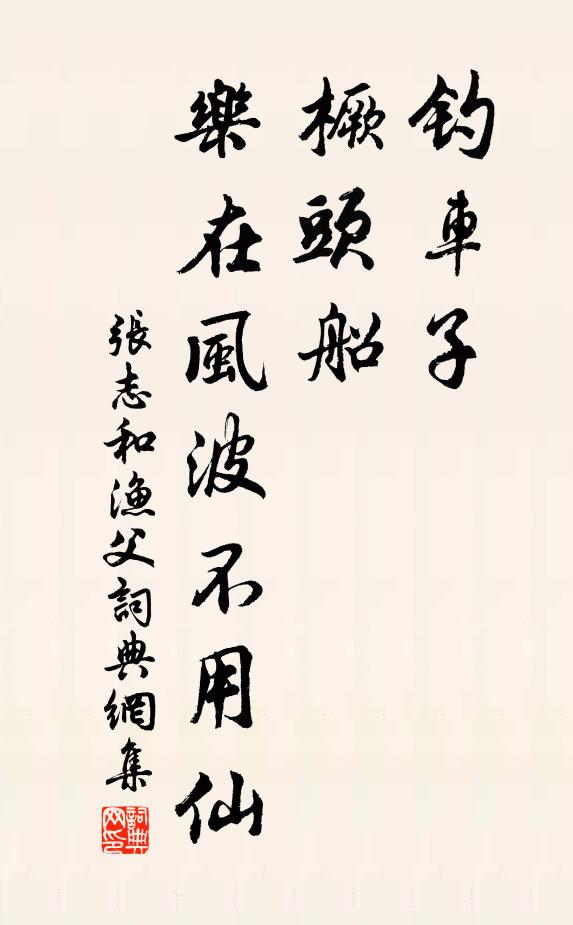 釣車子
橛頭船
樂在風波不用仙
張志和漁父詞典網集
詞典網印